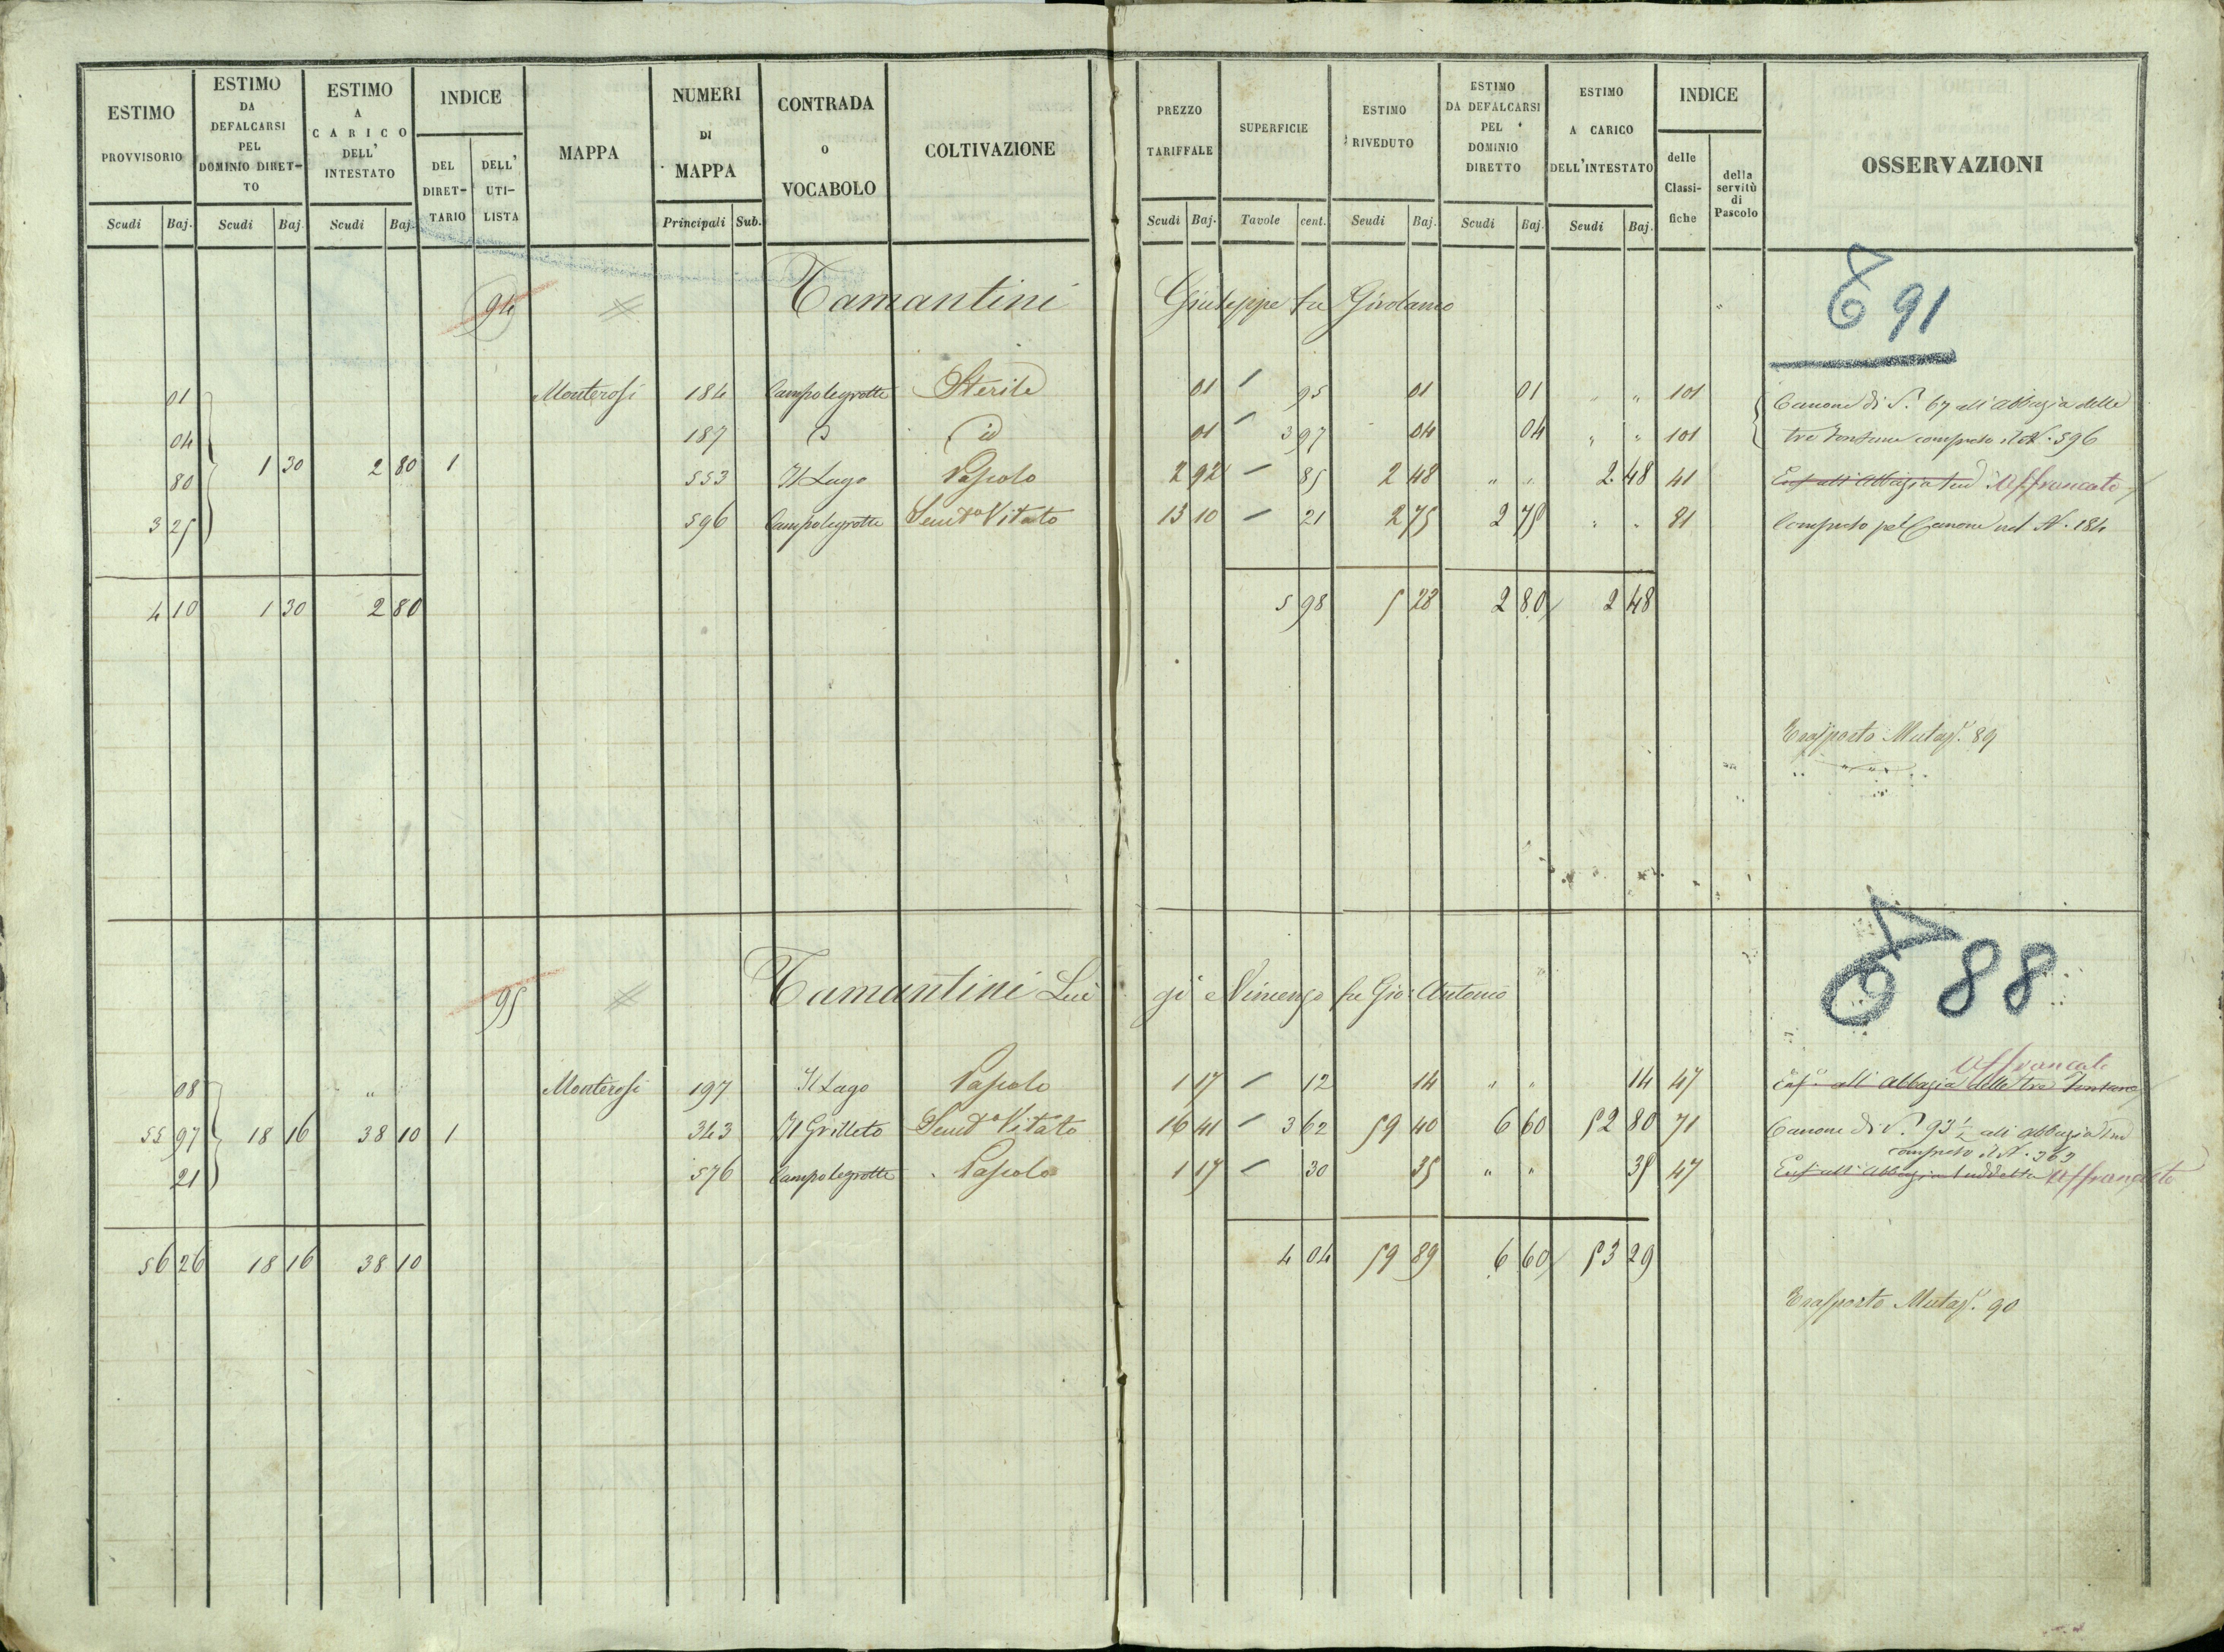 ESTIMO PROVVISORIO | ESTIMO DA DEFALCARSI PEL DOMINIO DIRETTO | ESTIMO A CARICO DELL' INTESTATO | INDICE | MAPPA | NUMERI DI MAPPA | CONTRADA o VOCABOLO | COLTIVAZIONE | PREZZO TARIFFALE | SUPERFICIE | ESTIMO RIVEDUTO | ESTIMO DA DEFALCARSI PEL DOMINIO DIRETTO | ESTIMO A CARICO DELL'INTESTATO | INDICE | OSSERVAZIONI
DEL DIRETTARIO | DELL' UTILISTA | delle Classifiche | della servitù di Pascolo
Scudi | Baj. | Scudi | Baj. | Scudi | Baj. | Principali | Sub. | Scudi | Baj. | Tavole | cent. | Scudi | Baj. | Scudi | Baj. | Scudi | Baj.
94 Tamantini Giuseppe fu Girolamo 91
01 Monterosi 184 Campolegrotte Sterile 01 / 95 01 01 " " 101 Canone di S. 67 all'abbazia delle
04 187 id 01 / 3 97 04 04 " " 101 tre Fontane compreso il N. 596
80 1 30 2 80 1 553 Il Lago Pascolo 2 92 / 85 2 48 " " 2 48 41 Enf. all'Abbazia sud Affrancato
3 25 596 Campolegrotte Semvo Vitato 13 10 / 21 2 75 2 75 " " 81 Compreso pel Canone nel N. 184
4 10 1 30 2 80 5 98 5 28 2 80 2 48
Trasporto Mutaz. 89
95 Tamantini Luigi e Vincenzo fu Gio: Antonio 88
Affrancato
08 " Monterosi 197 Il Lago Pascolo 1 17 / 12 14 " " 14 47 Enf. all'abbazia delle tre Fontane
55 97 18 16 38 10 1 343 Il Grilleto Semvo Vitato 16 41 / 3 62 59 40 6 60 52 80 71 Canone di S. 93 1/2 all'abbazia sud
compreso il N. 363
21 576 Campolegrotte Pascolo 1 17 / 30 35 " " 35 47 Enf. all'Abbazia suddetta Affrancato
56 26 18 16 38 10 4 04 59 89 6 60 53 29
Trasporto Mutaz. 90